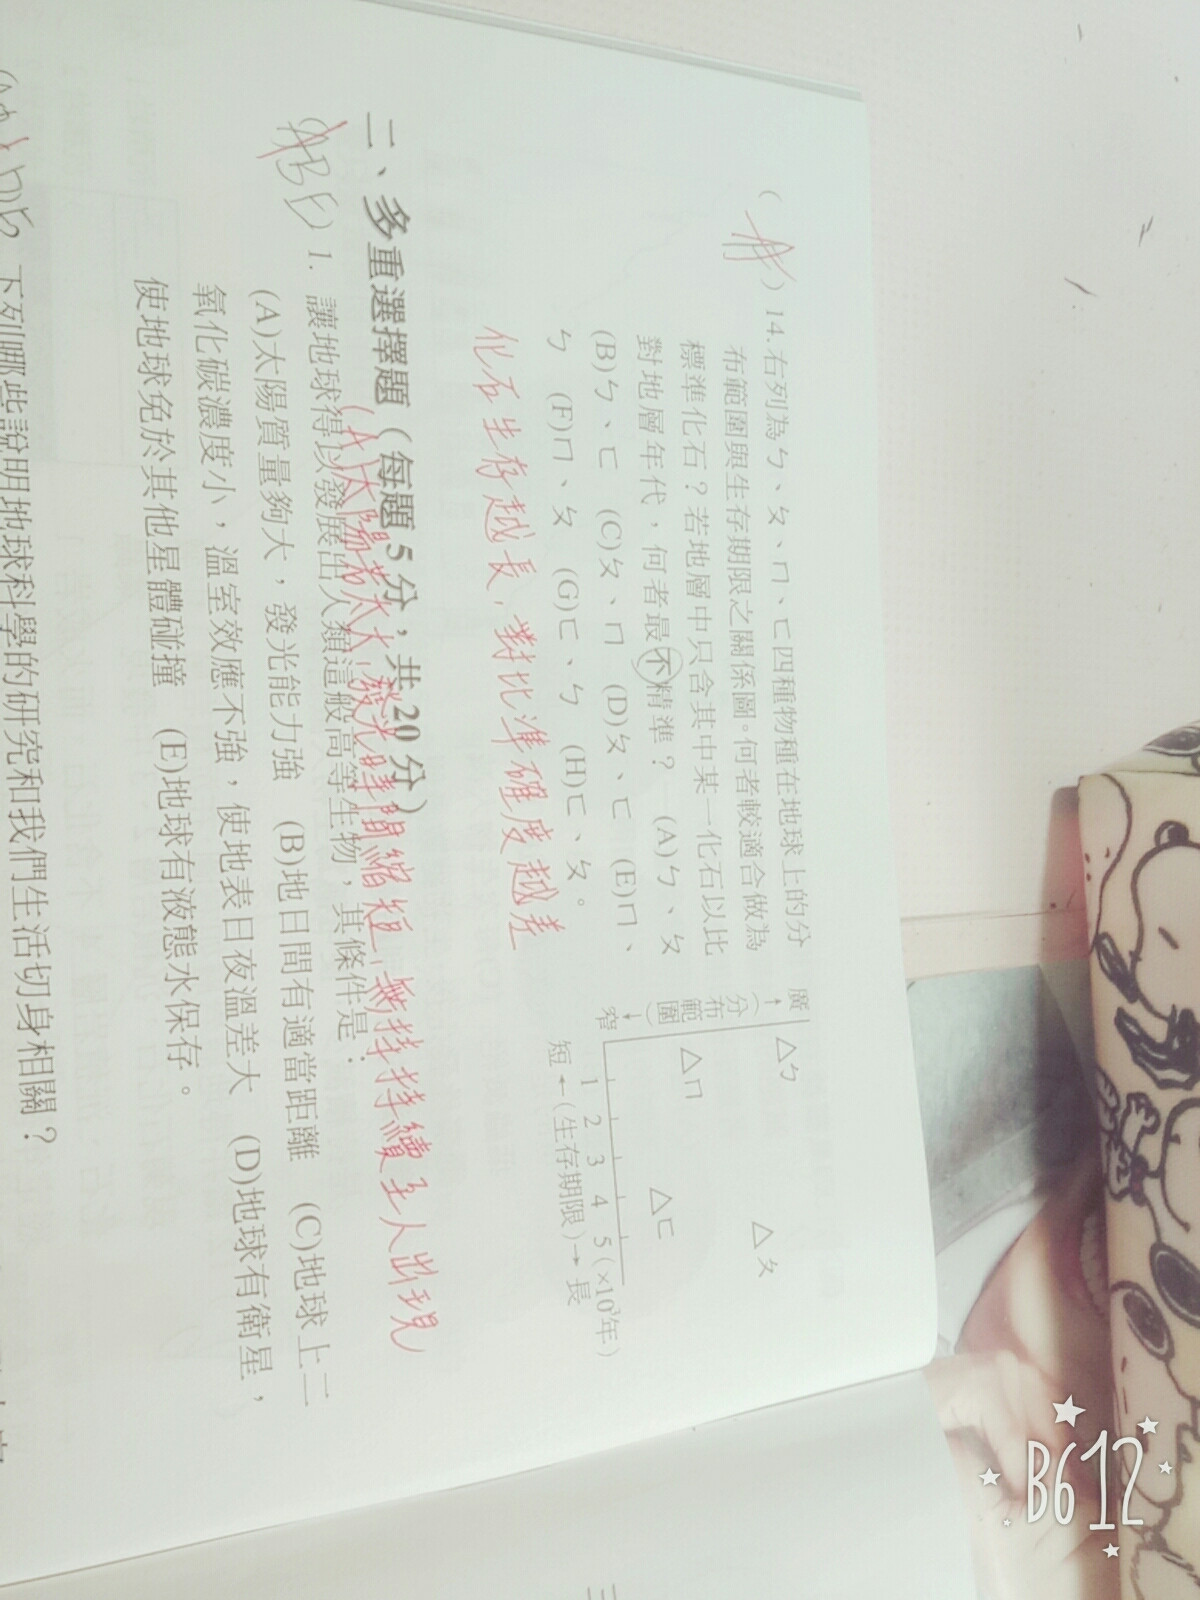 14.右列為ㄅ、ㄆ、ㄇ、ㄈ四種物種在地球上的分
布範圍與生存期限之關係圖。何者較適合做為
標準化石？若地層中只含其中某一化石以比
對地層年代，何者最不精準？ (A)ㄅ、ㄆ
(B)ㄅ、ㄈ (C)ㄆ、ㄇ (D)ㄆ、ㄈ (E)ㄇ、
ㄅ (F)ㄇ、ㄆ (G)ㄈ、ㄅ (H)ㄈ、ㄆ。
廣
↑
(分布範圍)
↓
窄
△ㄅ
△ㄆ
△ㄇ
△ㄈ
1 2 3 4 5 (×10³年)
短←(生存期限)→長
化石生存越長,對比準確度越差
二、多重選擇題（每題5分，共20分）
(A)太陽若太大,發光時間縮短,無持續至人出現
1. 讓地球得以發展出人類這般高等生物，其條件是：
(A)太陽質量夠大，發光能力強 (B)地日間有適當距離 (C)地球上二
氧化碳濃度小，溫室效應不強，使地表日夜溫差大 (D)地球有衛星，
使地球免於其他星體碰撞 (E)地球有液態水保存。
下列哪些說明地球科學的研究和我們生活切身相關？
B612